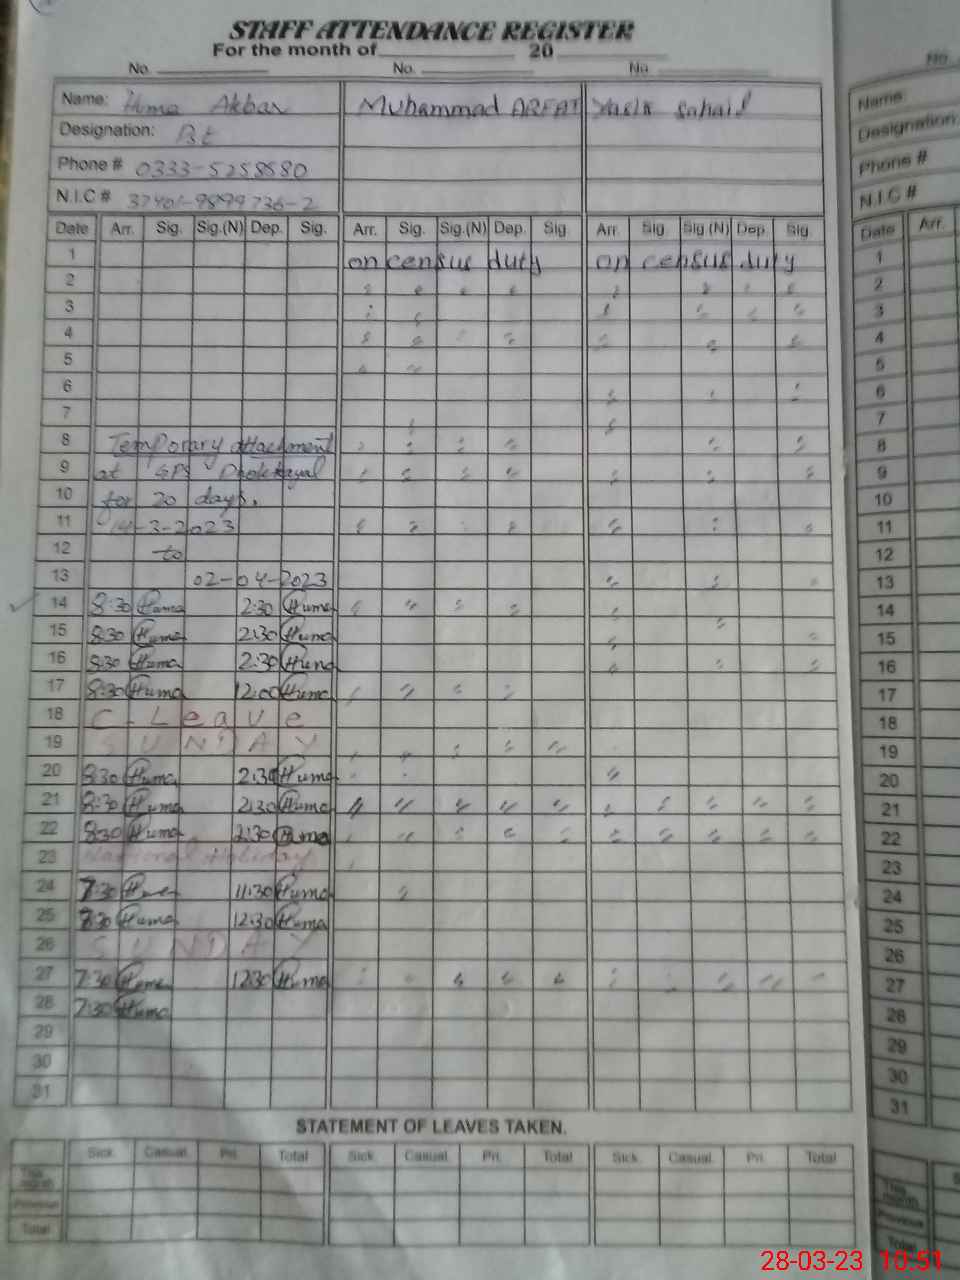 STAFF ATTENDANCE REGISTER
For the month of 20
No. No. No.
Name: Huma Akbar Muhammad ARFAT Yasir Sohail
Designation:
Phone # 0333-5258580
N.I.C # 37401-9899736-2
Date Arr. Sig. Sig.(N) Dep. Sig. Arr. Sig. Sig.(N) Dep. Sig. Arr. Sig. Sig.(N) Dep. Sig.
1 on census duty on census duty
2
3
4
5
6
7
8 Temporary attachment
9 at GPS
10 for 20 days.
11 14-3-2023
12 to
13 02-04-2023
14 8:30 Huma 2:30 Huma
15 8:30 Huma 2:30 Huma
16 8:30 Huma 2:30 Huma
17 8:30 Huma 12:00 Huma
18 C-Leave
19 SUNDAY
20 8:30 Huma 2:30 Huma
21 8:30 Huma 2:30 Huma
22 8:30 Huma 2:30 Huma
23 National Holiday
24 7:30 Huma 11:30 Huma
25 7:30 Huma 12:30 Huma
26 SUNDAY
27 7:30 Huma 12:30 Huma
28 7:30 Huma
29
30
31
STATEMENT OF LEAVES TAKEN.
Sick. Casual. Pri. Total Sick. Casual. Pri. Total Sick. Casual. Pri. Total
This month
Previous
Total
No.
Name:
Designation:
Phone #
N.I.C #
Date Arr.
1
2
3
4
5
6
7
8
9
10
11
12
13
14
15
16
17
18
19
20
21
22
23
24
25
26
27
28
29
30
31
This month
Previous
Total
28-03-23 10:51